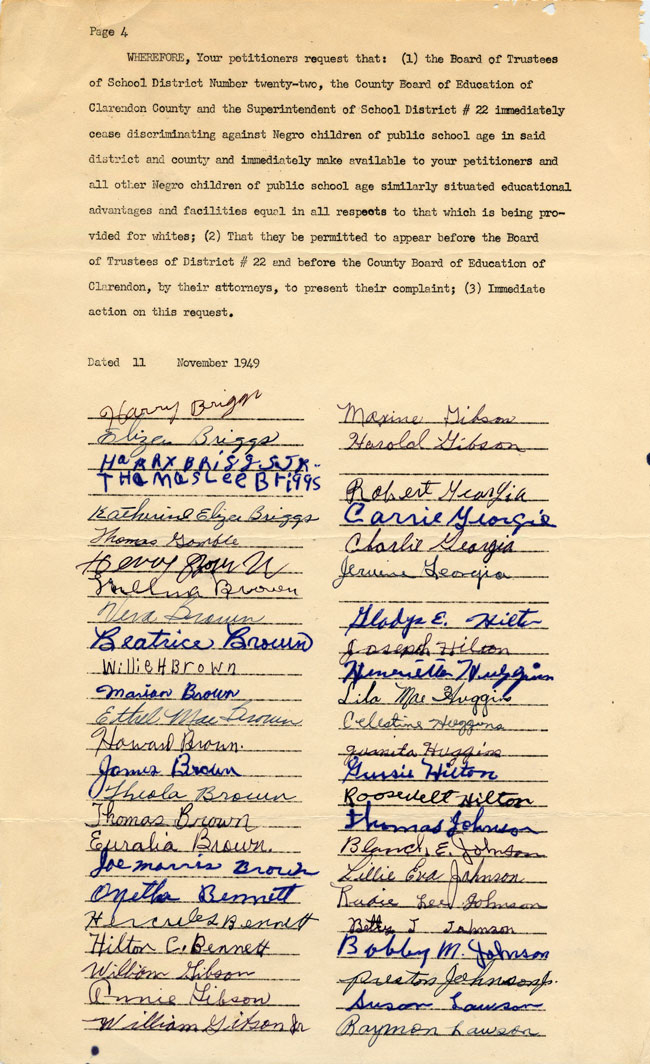 Page 4
WHEREFORE, Your petitioners request that: (1) the Board of Trustees
of School District Number twenty-two, the County Board of Education of
Clarendon County and the Superintendent of School District # 22 immediately
cease discriminating against Negro children of public school age in said
district and county and immediately make available to your petitioners and
all other Negro children of public school age similarly situated educational
advantages and facilities equal in all respects to that which is being pro-
vided for whites; (2) That they be permitted to appear before the Board
of Trustees of District # 22 and before the County Board of Education of
Clarendon, by their attorneys, to present their complaint; (3) Immediate
action on this request.
Dated 11 November 1949
Harry Briggs
Eliza Briggs
HARRY BRiggS.JR.
THOMAS Lee Briggs
Katherine Eliza Briggs
Thomas Gamble
Henry Brown
Thelma Brown
Vera Brown
Beatrice Brown
Willie H Brown
Marian Brown
Ethel Mae Brown
Howard Brown.
James Brown
Theola Brown
Thomas Brown
Euralia Brown.
Joe morris Brown
Onetha Bennett
Hercules Bennett
Hilton C. Bennett
William Gibson
Annie Gibson
William Gibson Jr
Maxine Gibson
Harold Gibson
Robert Georgia
Carrie Georgia
Charlie Georgia
Jervine Georgia
Gladys E. Hilton
Joseph Hilton
Henrietta Huggins
Lila Mae Huggins
Celestine Huggins
Juanita Huggins
Gussie Hilton
Roosevelt Hilton
Thomas Johnson
Blanch E. Johnson
Lillie Eva Johnson
Rubie Lee Johnson
Betty J Johnson
Bobby M. Johnson
Preston Johnson Jr.
Susan Lawson
Raymon Lawson